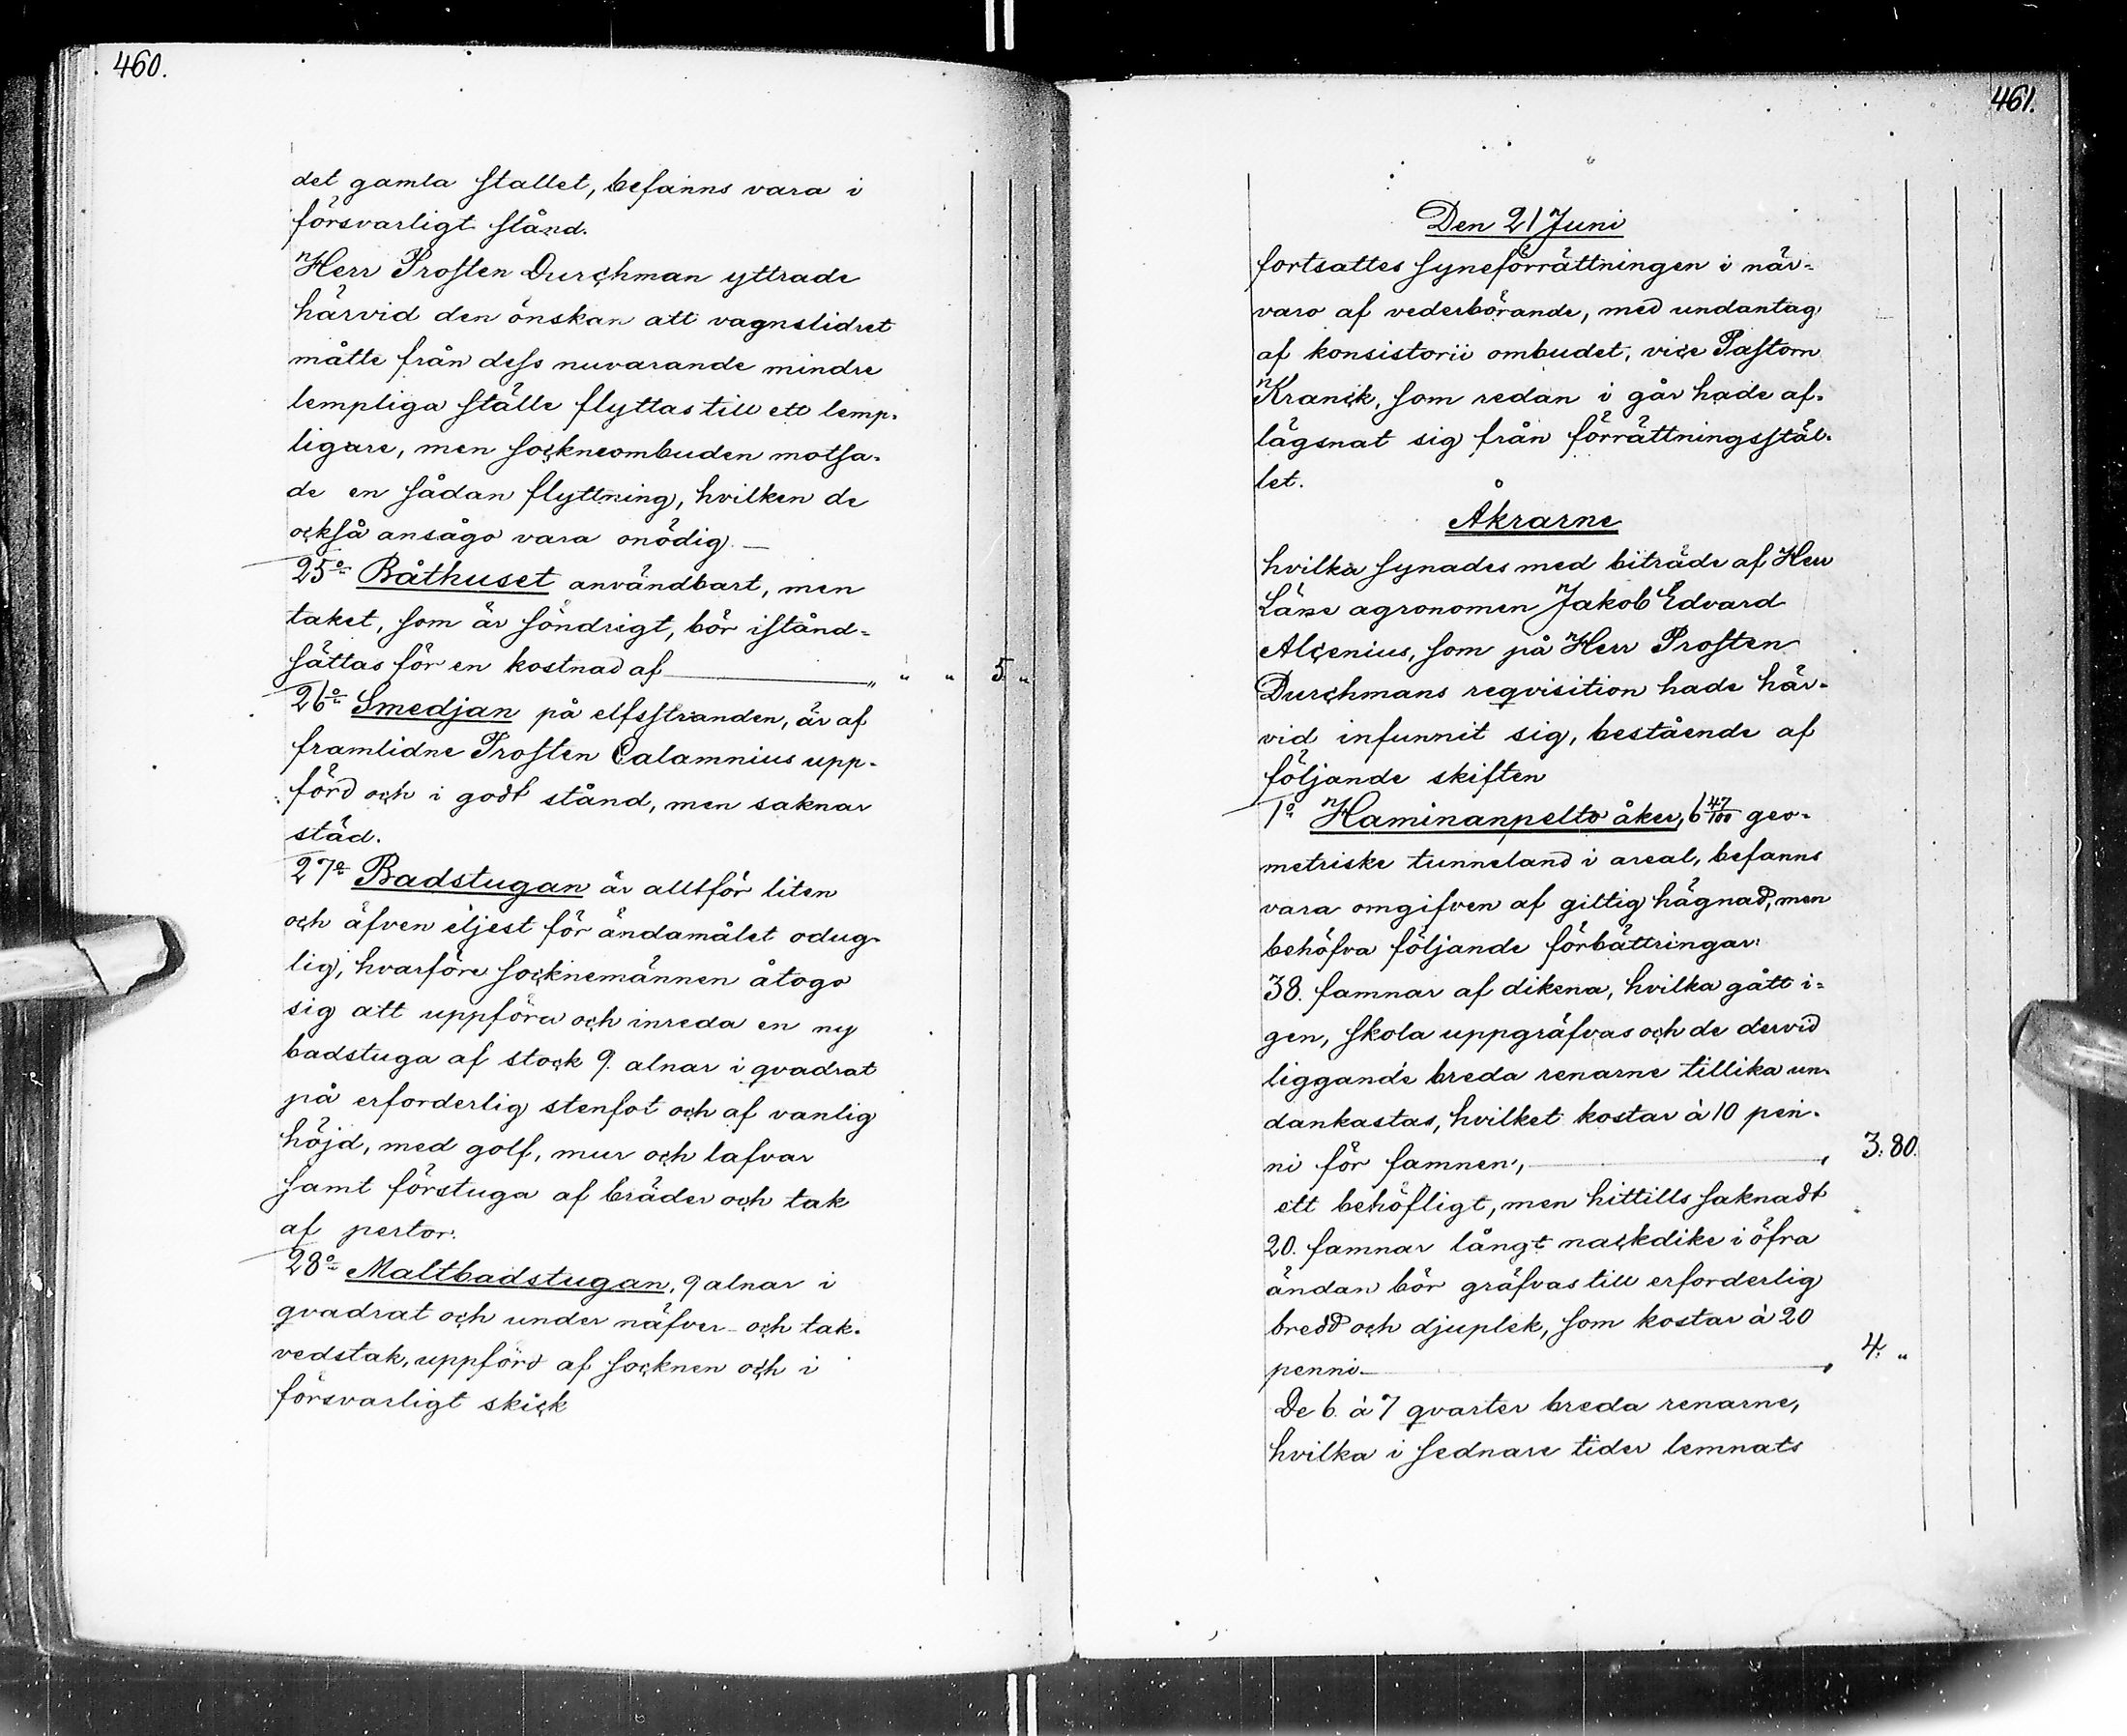 460.
det gamla stallet, befanns vara i
försvarligt stånd.
Herr Prosten Durchman yttrade
härvid den önskan att vagnslidret
måtte från dess nuvarande mindre
lempliga ställe flyttas till ett lemp-
ligare, men sockneombuden motsa-
de en sådan flyttning, hvilken de
också ansågo vara onödig. —
25o Båthuset användbart, men
taket, som är söndrigt, bör istånd-
sättas för en kostnad af — „ „ „ 5 „
26o Smedjan på elfsstranden, är af
framlidne Prosten Calamnius upp-
förd och i godt stånd, men saknar
städ.
27o Badstugan är alltför liten
och äfven eljest för ändamålet odug-
lig, hvarföre socknemännen åtogo
sig att uppföra och inreda en ny
badstuga af stock 9. alnar i qvadrat
på erforderlig stenfot och af vanlig
höjd, med golf, mur och lafvar
samt förstuga af bräder och tak
af pertor.
28o Maltbadstugan, 9 alnar i
qvadrat och under näfver- och tak-
vedstak, uppförd af socknen och i
försvarligt skick
461.
Den 21 Juni
fortsattes syneförrättningen i när-
varo af vederbörande, med undantag
af konsistorii ombudet, vice Pastorn
Kranck, som redan i går hade af-
lägsnat sig från förrättningsstäl-
let.
Åkrarne
hvilka synades med biträde af Herr
Läne agronomen Jakob Edvard
Alcenius, som på Herr Prosten
Durchmans reqvisition hade här-
vid infunnit sig, bestående af
följande skiften
1o Haminanpelto åker, 6 47/100 geo-
metriske tunneland i areal, befanns
vara omgifven af giltig hägnad, men
behöfva följande förbättringar:
38. famnar af dikena, hvilka gått i-
gen, skola uppgräfvas och de dervid
liggande breda renarne tillika un-
dankastas, hvilket kostar à 10 pen-
ni för famnen, — 3. 80.
ett behöfligt, men hittills saknadt
20. famnar långt nackdike i öfra
ändan bör gräfvas till erforderlig
bredd och djuplek, som kostar à 20
penni — 4. „
De 6. à 7 qvarter breda renarne,
hvilka i sednare tider lemnats